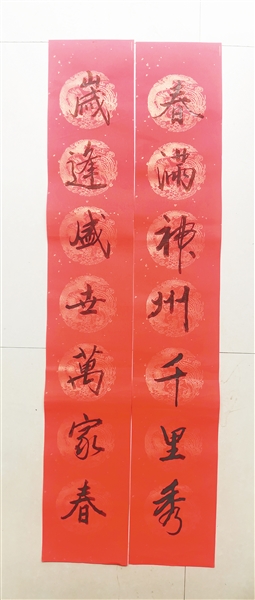 春滿神州千里秀
歲逢盛世萬家春